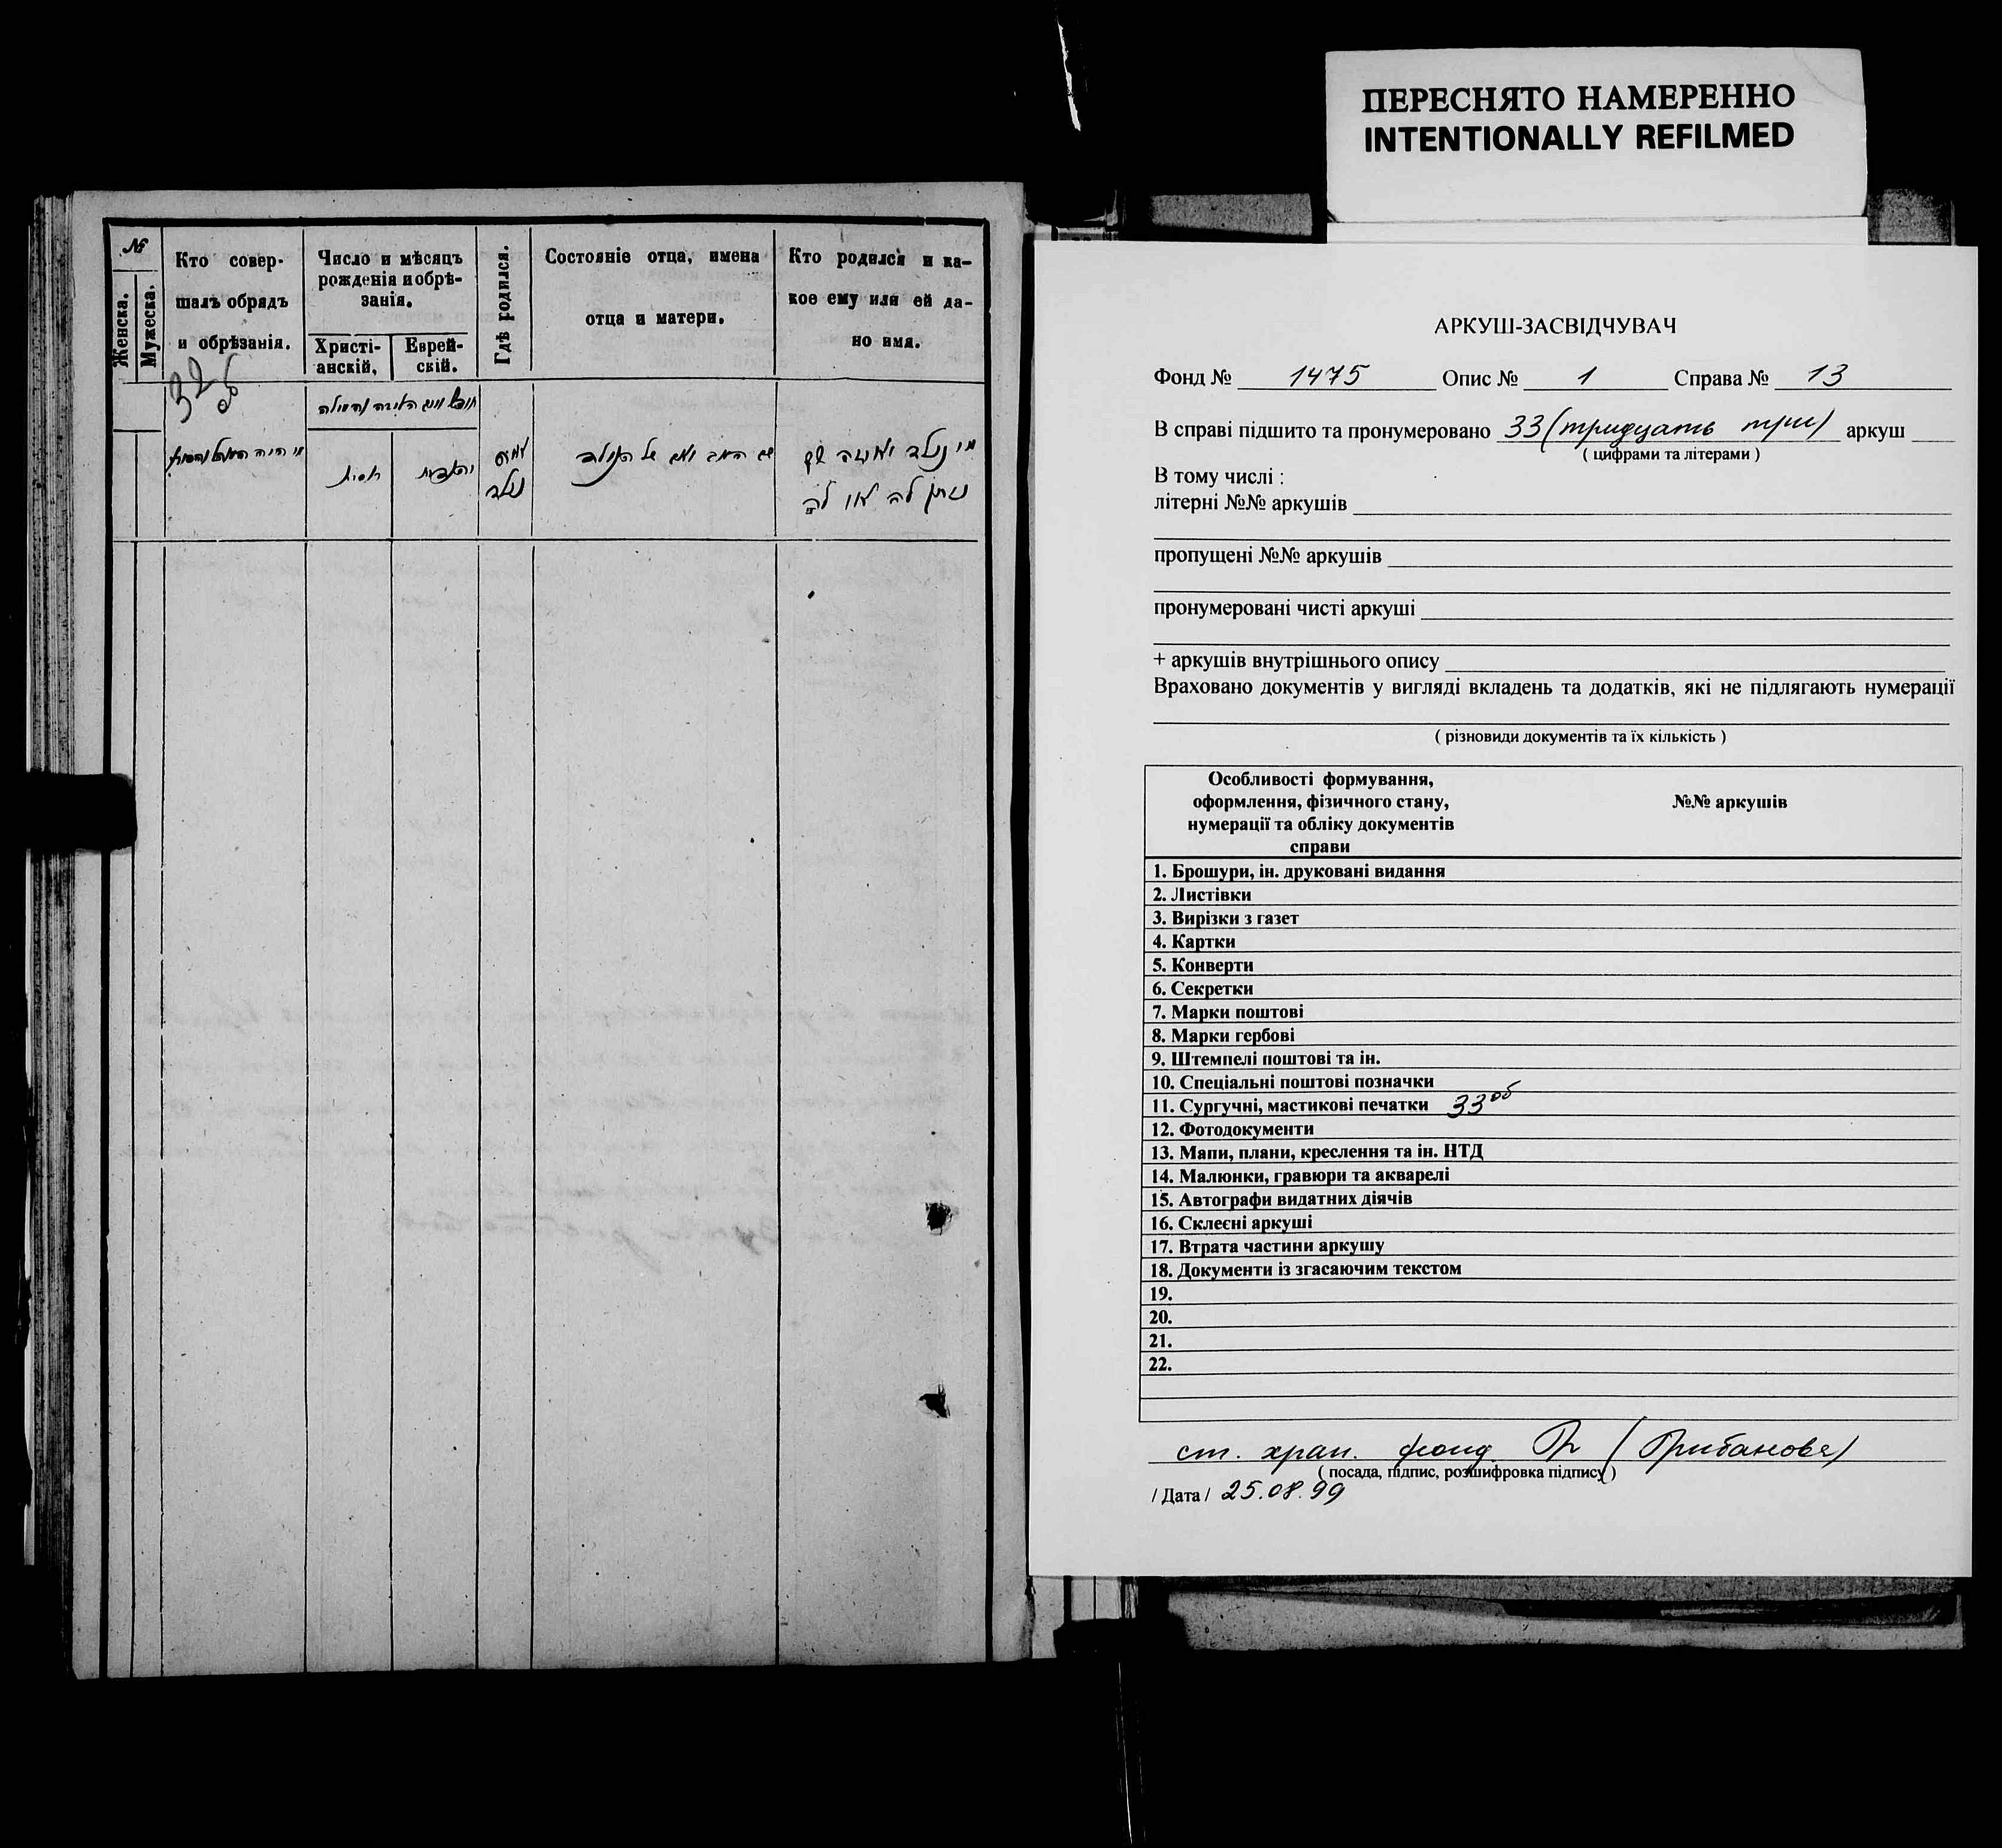 ПЕРЕСНЯТО НАМЕРЕННО
INTENTIONALLY REFILMED
№
Женска.
Мужеска.
Кто совер-
шалъ обрядъ
и обрѣзанія.
Число и мѣсяцъ
рожденія и обрѣ-
занія.
Христі-
анскій,
Еврей-
скій.
Гдѣ родился.
Состояніе отца, имена
отца и матери.
Кто родился и ка-
кое ему или ей да-
но имя.
32 об
מי היה
נולד
מי נולד
לה או לה
АРКУШ-ЗАСВІДЧУВАЧ
Фонд № 1475 Опис № 1 Справа № 13
В справі підшито та пронумеровано 33 (тридцать три) аркуш
( цифрами та літерами )
В тому числі :
літерні №№ аркушів
пропущені №№ аркушів
пронумеровані чисті аркуші
+ аркушів внутрішнього опису
Враховано документів у вигляді вкладень та додатків, які не підлягають нумерації
( різновиди документів та їх кількість )
Особливості формування,
оформлення, фізичного стану,
нумерації та обліку документів
справи
№№ аркушів
1. Брошури, ін. друковані видання
2. Листівки
3. Вирізки з газет
4. Картки
5. Конверти
6. Секретки
7. Марки поштові
8. Марки гербові
9. Штемпелі поштові та ін.
10. Спеціальні поштові позначки
11. Сургучні, мастикові печатки 33 об
12. Фотодокументи
13. Мапи, плани, креслення та ін. НТД
14. Малюнки, гравюри та акварелі
15. Автографи видатних діячів
16. Склеєні аркуші
17. Втрата частини аркушу
18. Документи із згасаючим текстом
19.
20.
21.
22.
ст. хран. фонд (Грибанова)
( посада, підпис, розшифровка підпису )
/ Дата / 25.08.99